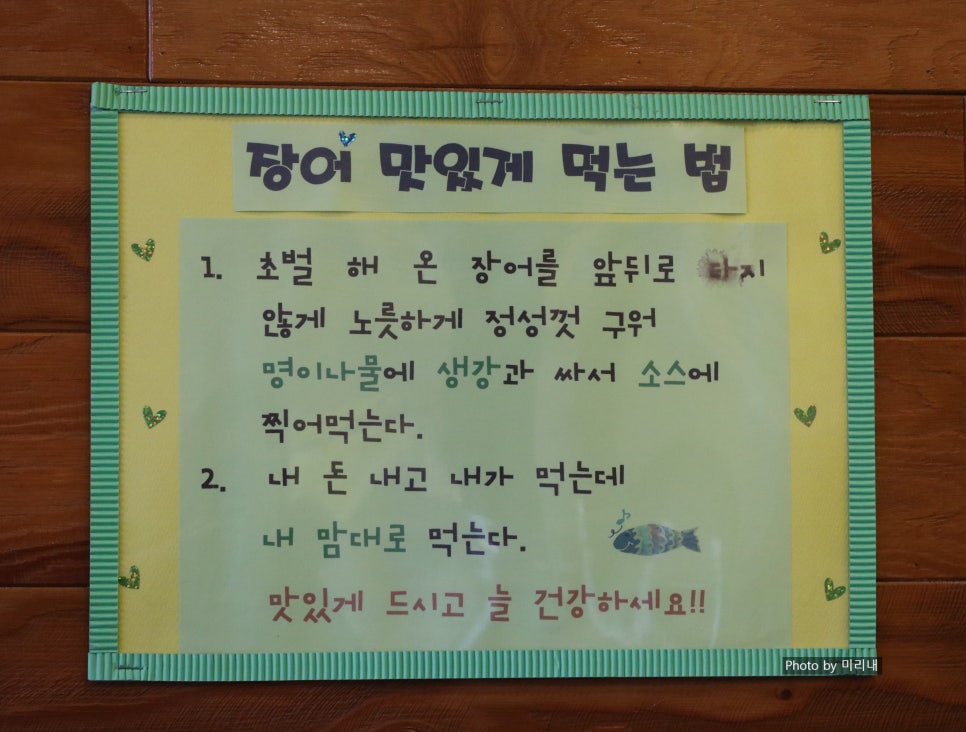 장어 맛있게 먹는 법
1. 초벌 해 온 장어를 앞뒤로 타지
않게 노릇하게 정성껏 구워
명이나물에 생강과 싸서 소스에
찍어먹는다.
2. 내 돈 내고 내가 먹는데
내 맘대로 먹는다.
맛있게 드시고 늘 건강하세요!!
Photo by 미리내